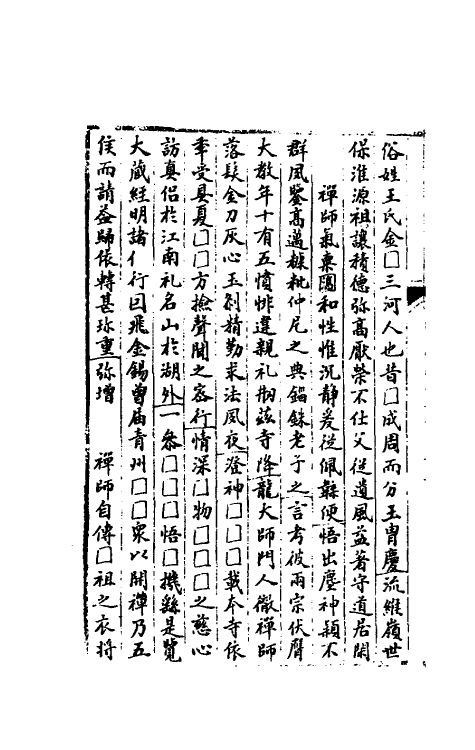 俗姓王氏金□三河人也昔□成周而分王胄慶流維嶺世
保淮源祖讓積德弥高厭榮不仕父從道風益著守道居閑
禪師氣稟陽和性惟沉静爰從佩觿便悟出塵神穎不
群風鑒高邁糠粃仲尼之典錙銖老子之言考彼兩宗伏膺
大教年十有五憤悱違親礼荊兹寺降龍大師門人徹禪師
落髮金刀灰心玉剎精勤求法夙夜澄神□□□載本寺依
季受具夏□□方撿聲聞之密行情深□物□□□之慈心
訪真侣於江南礼名山於湖外一叅□□□□悟□機繇是覽
大藏經明諸亻行因飛金錫曽届青州□□衆以開禪乃五
侯而請益歸依轉甚珎重弥増　禪師自傳□祖之衣将